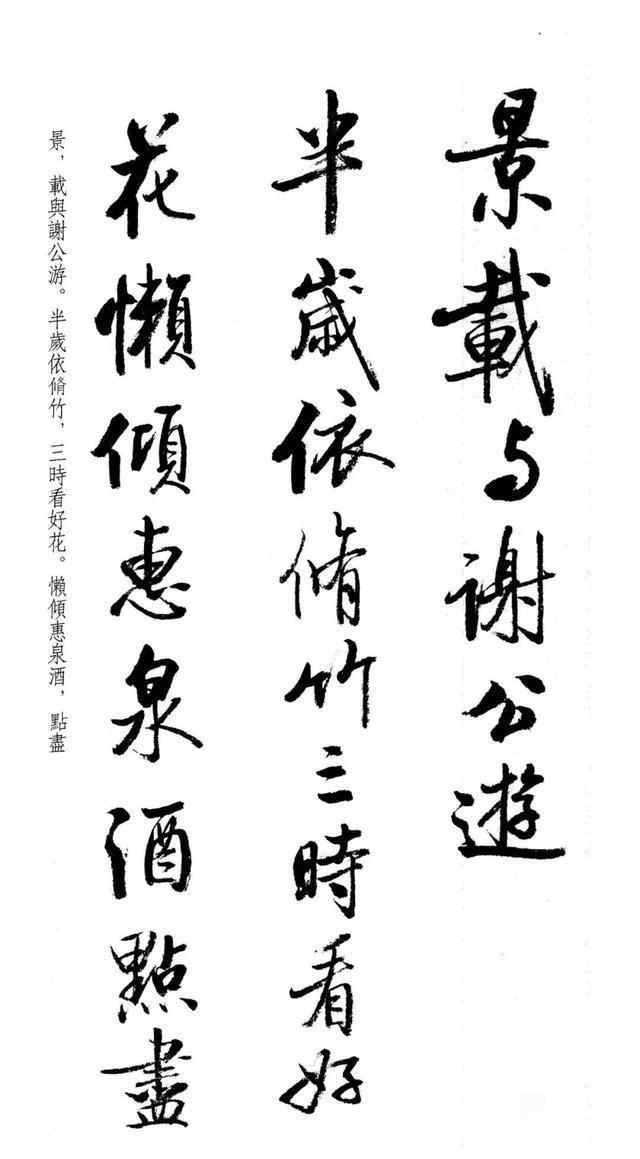 景載与謝公遊
半歲依脩竹三時看好
花懶傾惠泉酒點盡
景，載與謝公游。半歲依脩竹，三時看好花。懶傾惠泉酒，點盡